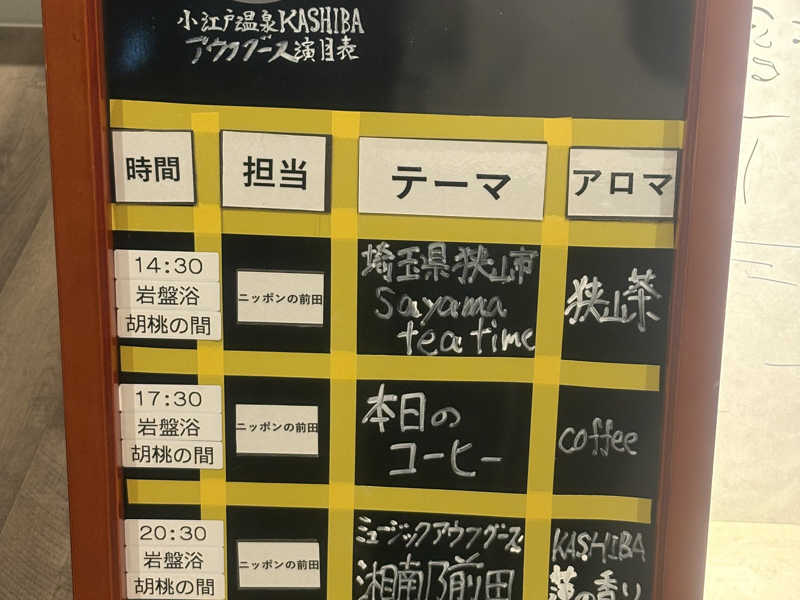 小江戸温泉KASHIBA
アウフグース演目表
時間 担当 テーマ アロマ
14:30
岩盤浴
胡桃の間
ニッポンの前田
埼玉県狭山市
Sayama
tea time
狭山茶
17:30
岩盤浴
胡桃の間
ニッポンの前田
本日の
コーヒー
coffee
20:30
岩盤浴
胡桃の間
ニッポンの前田
ミュージックアウフグース
湘南乃前田
KASHIBA
蓮の香り